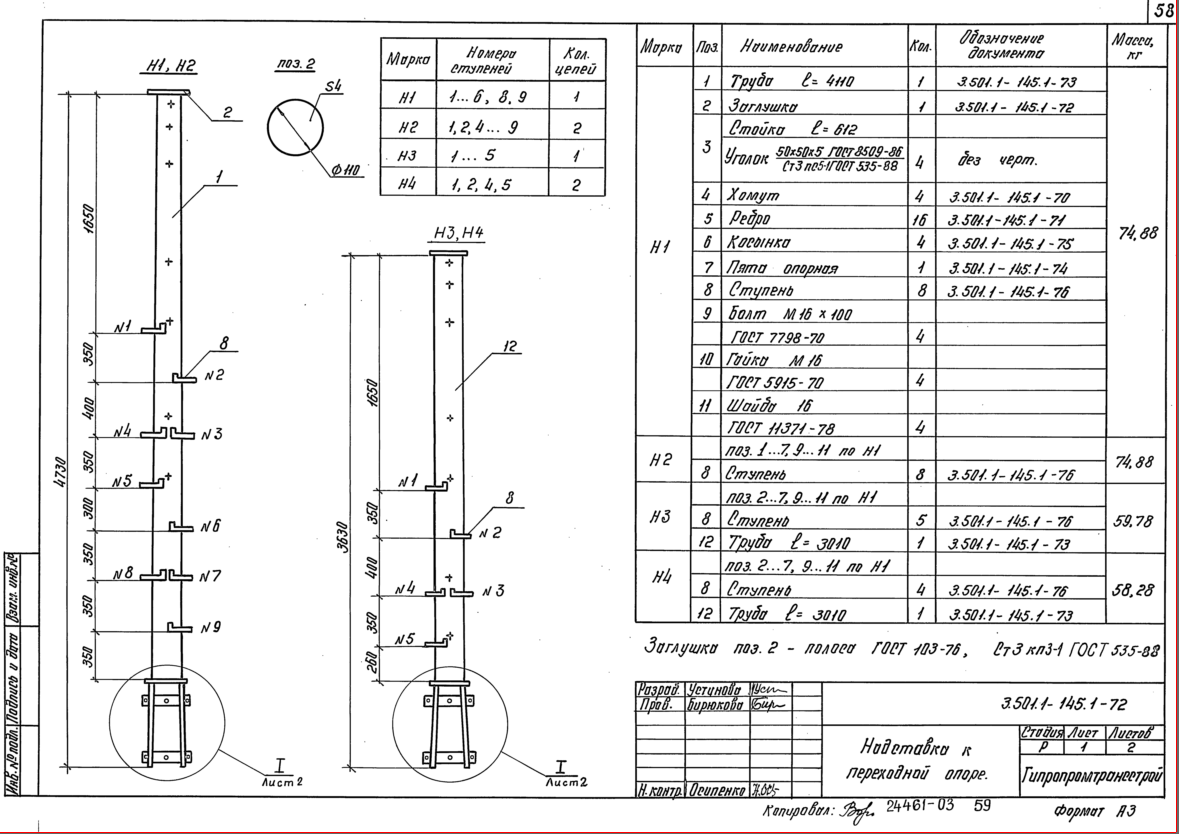 58
Н1, Н2
поз. 2
S4
Ф110
2
1
8
Марка Номера ступеней Кол. цепей
Н1 1...6, 8,9 1
Н2 1,2,4...9 2
Н3 1...5 1
Н4 1,2,4,5 2
Н3, Н4
12
8
1650
350
400
350
300
350
350
350
4730
N1
N2
N4 N3
N5
N6
N8 N7
N9
I
Лист 2
1650
350
400
350
260
3630
N1
N2
N4 N3
N5
I
Лист 2
Марка Поз. Наименование Кол. Обозначение документа Масса, кг
Н1
1 Труба ℓ= 4110 1 3.501.1- 145.1-73
2 Заглушка 1 3.501.1- 145.1-72
3 Стойка ℓ= 612
Уголок 50х50х5 ГОСТ 8509-86 / Ст3пс5-1 ГОСТ 535-88 4 без черт.
4 Хомут 4 3.501.1- 145.1-70
5 Ребро 16 3.501.1-145.1-71
6 Косынка 4 3.501.1- 145.1-75
7 Пята опорная 1 3.501.1- 145.1-74
8 Ступень 8 3.501.1- 145.1-76
9 Болт М16 × 100
ГОСТ 7798-70 4
10 Гайка М16
ГОСТ 5915-70 4
11 Шайба 16
ГОСТ 11371-78 4
74,88
Н2 поз. 1...7, 9...11 по Н1 74,88
8 Ступень 8 3.501.1-145.1-76
Н3 поз. 2...7, 9...11 по Н1 59,78
8 Ступень 5 3.501.1- 145.1-76
12 Труба ℓ= 3010 1 3.501.1- 145.1-73
Н4 поз. 2...7, 9...11 по Н1 58,28
8 Ступень 4 3.501.1- 145.1-76
12 Труба ℓ= 3010 1 3.501.1- 145.1-73
Заглушка поз. 2 - полоса ГОСТ 103-76, Ст3 кп3-1 ГОСТ 535-88
Разраб. Устинова
Пров. Бирюкова
Н.контр. Осипенко
3.501.1- 145.1-72
Надставка к переходной опоре.
Стадия Лист Листов
Р 1 2
Гипропромтрансстрой
Копировал: 24461-03 59 Формат А3
Инв.№ подл. Подпись и дата Взам. инв.№